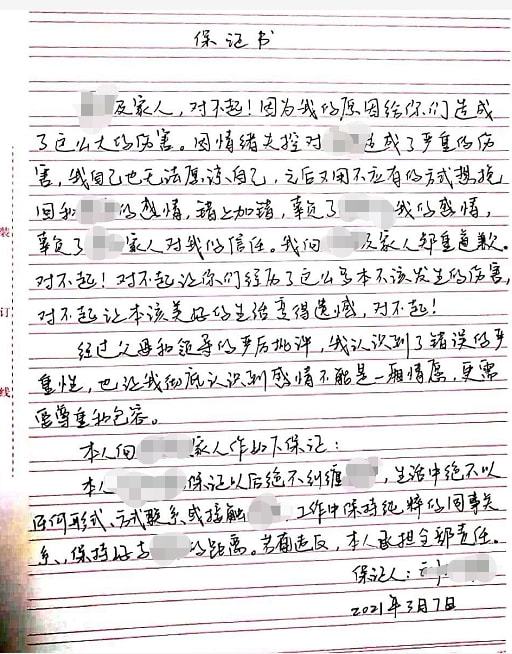 保证书
及家人,对不起!因为我的原因给你们造成
了这么大的伤害。因情绪失控对 造成了严重的伤
害,我自己也无法原谅自己,之后又用不应有的方式想挽
回和 的感情,错上加错,辜负了 我的感情,
辜负了 家人对我的信任。我向 及家人郑重道歉。
对不起!对不起让你们经历了这么多本不该发生的伤害,
对不起让本该美好的生活变得遗憾,对不起!
经过父母和领导的严厉批评,我认识到了错误的严
重性,也让我彻底认识到感情不能是一厢情愿,更需
要尊重和包容。
本人向 家人作如下保证:
本人 保证以后绝不纠缠 ,生活中绝不以
任何形式、方式联系或接触 ,工作中保持纯粹的同事关
系,保持好与 的距离。若有违反,本人承担全部责任。
保证人:
2021年3月7日
装
订
线